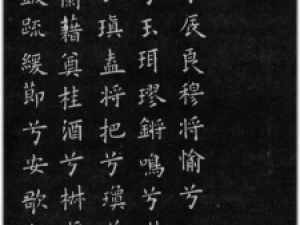 辰良穆將愉兮
玉珥璆鏘鳴兮
瑱盍將把兮瓊
蘭藉奠桂酒兮椒
疏緩節兮安歌